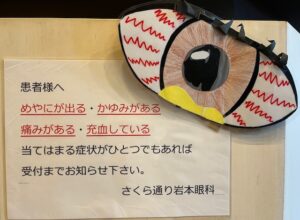 患者様へ
めやにが出る・かゆみがある
痛みがある・充血している
当てはまる症状がひとつでもあれば
受付までお知らせ下さい。
さくら通り岩本眼科